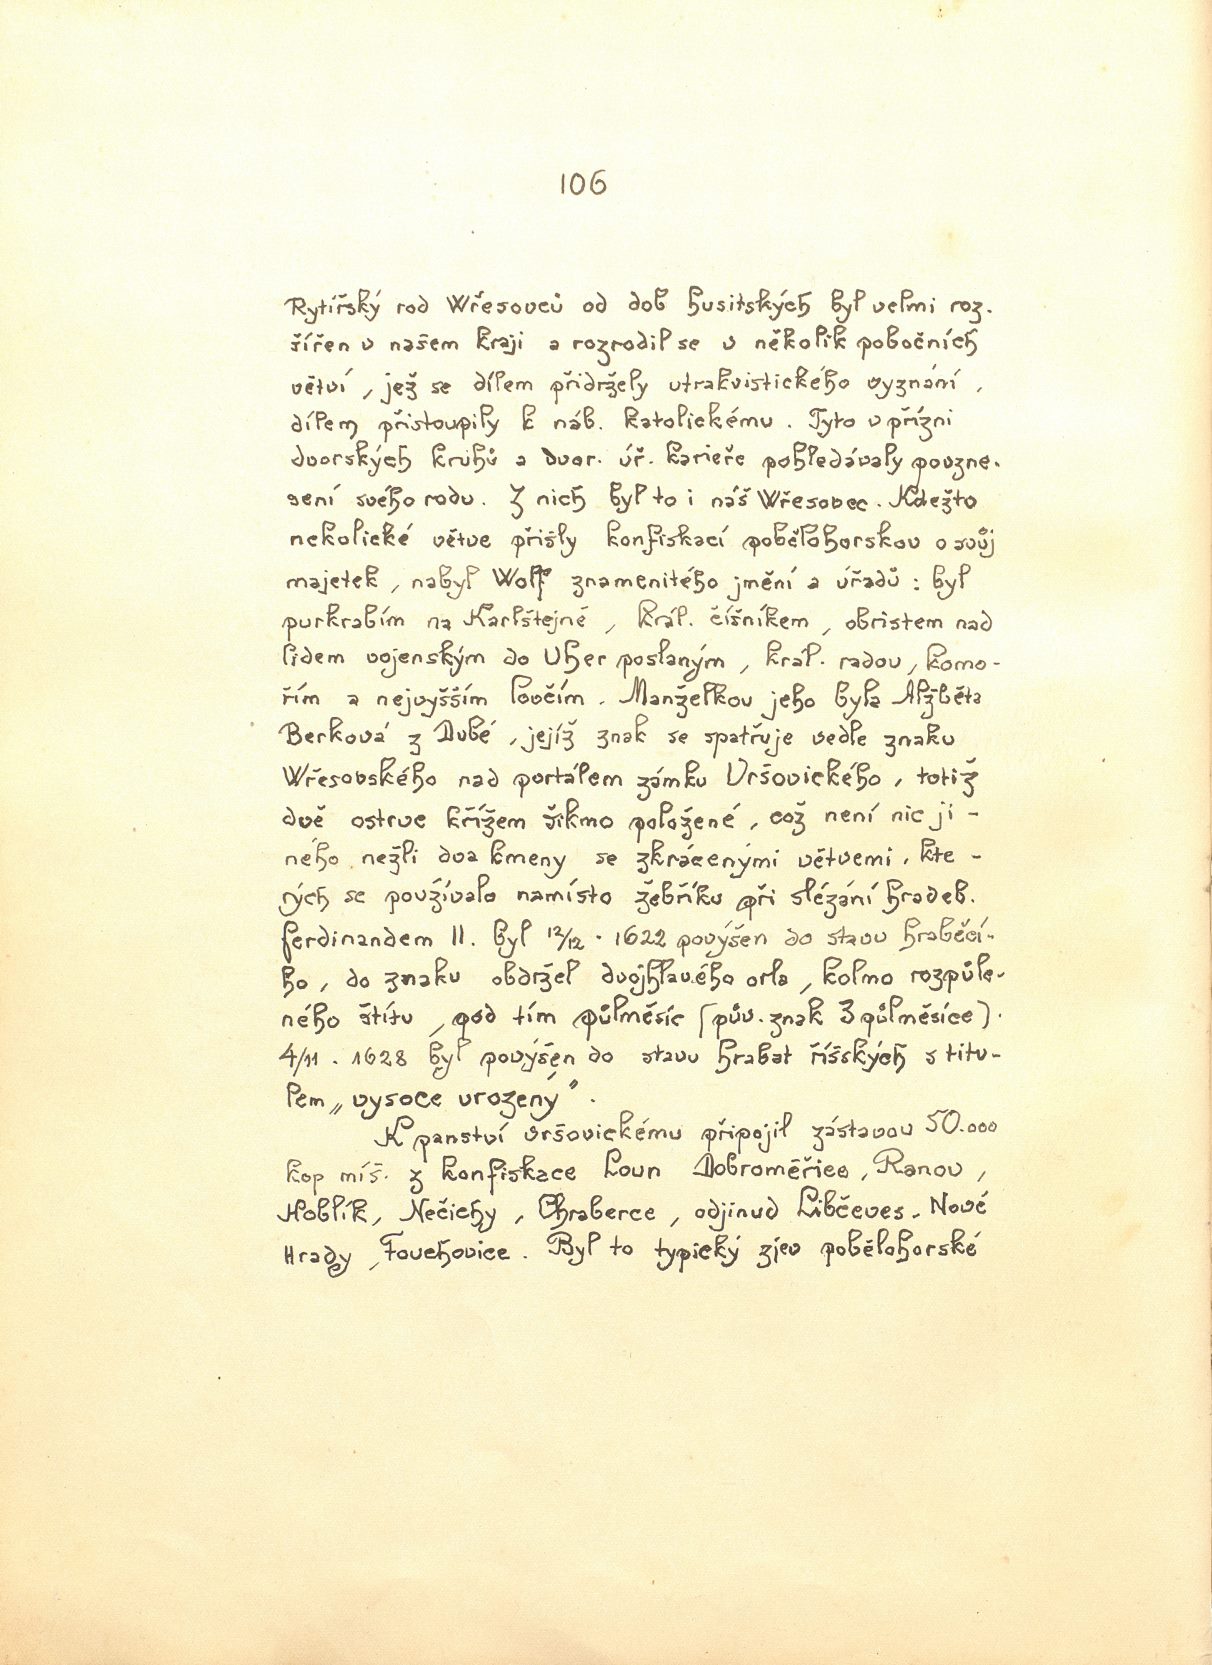 106
Rytířský rod Wřesovců od dob husitských byl velmi roz-
šířen v našem kraji a rozrodil se v několik pobočních
větví, jež se dílem přidržely utrakvistického vyznání,
dílem přistoupily k náb. katolickému. Tyto v přízni
dvorských kruhů a dvor. úř. karieře pohledávaly povzne-
sení svého rodu. Z nich byl to i náš Wřesovec. Kdežto
nekolické větve přišly konfiskací pobělohorskou o svůj
majetek, nabyl Wolf znamenitého jmění a úřadů: byl
purkrabím na Karlštejně, král. číšníkem, obristem nad
lidem vojenským do Uher poslaným, král. radou, komo-
řím a nejvyšším lovčím. Manželkou jeho byla Alžběta
Berková z Dubé, jejíž znak se spatřuje vedle znaku
Wřesovského nad portálem zámku Vršovického, totiž
dvě ostrve křížem šikmo položené, což není nic ji-
ného nežli dva kmeny se zkrácenými větvemi, kte-
rých se používalo namísto žebříku při slézání hradeb.
Ferdinandem II. byl 12/12. 1622 povýšen do stavu hraběcí-
ho, do znaku obdržel dvojhlavého orla, kolmo rozpůle-
ného štítu, pod tím půlměsíc (pův. znak 3 půlměsíce).
4/11. 1628 byl povýšen do stavu hrabat říšských s titu-
lem „vysoce urozený".
K panství vršovickému připojil zástavou 50.000
kop míš. z konfiskace Loun Dobroměřice, Ranou,
Hoblík, Nečichy, Chraberce, odjinud Libčeves. Nové
Hrady, Touchovice. Byl to typický zjev pobělohorské